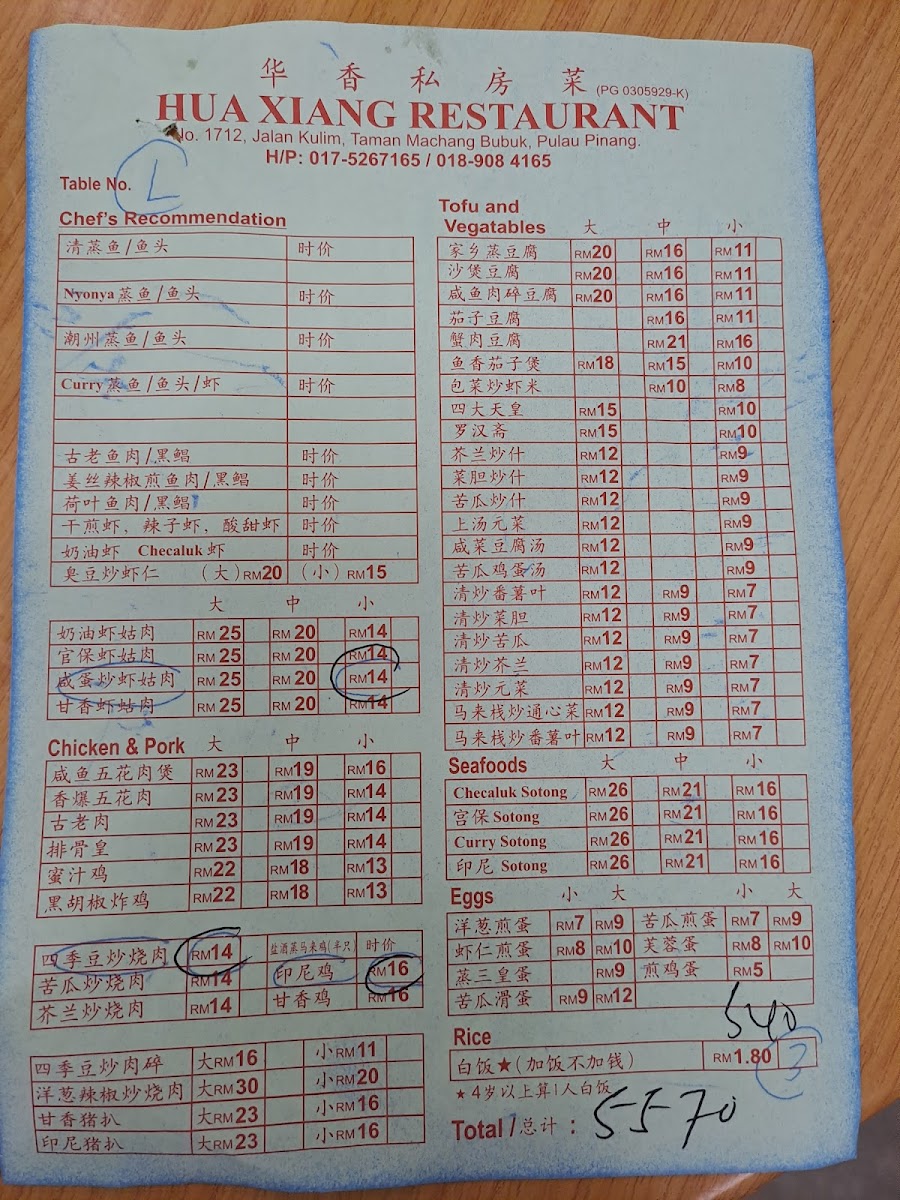 华香私房菜 (PG 0305929-K)
HUA XIANG RESTAURANT
No. 1712, Jalan Kulim, Taman Machang Bubuk, Pulau Pinang.
H/P: 017-5267165 / 018-908 4165
Table No. L
Chef's Recommendation
清蒸鱼/鱼头 时价
Nyonya蒸鱼/鱼头 时价
潮州蒸鱼/鱼头 时价
Curry蒸鱼/鱼头/虾 时价
古老鱼肉/黑鲳 时价
姜丝辣椒煎鱼肉/黑鲳 时价
荷叶鱼肉/黑鲳 时价
干煎虾, 辣子虾, 酸甜虾 时价
奶油虾 Checaluk虾 时价
臭豆炒虾仁 (大)RM20 (小)RM15
大 中 小
奶油虾姑肉 RM25 RM20 RM14
官保虾姑肉 RM25 RM20 RM14
咸蛋炒虾姑肉 RM25 RM20 RM14
甘香虾蛄肉 RM25 RM20 RM14
Chicken & Pork 大 中 小
咸鱼五花肉煲 RM23 RM19 RM16
香爆五花肉 RM23 RM19 RM14
古老肉 RM23 RM19 RM14
排骨皇 RM23 RM19 RM14
蜜汁鸡 RM22 RM18 RM13
黑胡椒炸鸡 RM22 RM18 RM13
四季豆炒烧肉 RM14 盐酒蒸马来鸡(半只) 时价
苦瓜炒烧肉 RM14 印尼鸡 RM16
芥兰炒烧肉 RM14 甘香鸡 RM16
四季豆炒肉碎 大RM16 小RM11
洋葱辣椒炒烧肉 大RM30 小RM20
甘香猪扒 大RM23 小RM16
印尼猪扒 大RM23 小RM16
Tofu and
Vegatables 大 中 小
家乡蒸豆腐 RM20 RM16 RM11
沙煲豆腐 RM20 RM16 RM11
咸鱼肉碎豆腐 RM20 RM16 RM11
茄子豆腐 RM16 RM11
蟹肉豆腐 RM21 RM16
鱼香茄子煲 RM18 RM15 RM10
包菜炒虾米 RM10 RM8
四大天皇 RM15 RM10
罗汉斋 RM15 RM10
芥兰炒什 RM12 RM9
菜胆炒什 RM12 RM9
苦瓜炒什 RM12 RM9
上汤元菜 RM12 RM9
咸菜豆腐汤 RM12 RM9
苦瓜鸡蛋汤 RM12 RM9
清炒番薯叶 RM12 RM9 RM7
清炒菜胆 RM12 RM9 RM7
清炒苦瓜 RM12 RM9 RM7
清炒芥兰 RM12 RM9 RM7
清炒元菜 RM12 RM9 RM7
马来栈炒通心菜 RM12 RM9 RM7
马来栈炒番薯叶 RM12 RM9 RM7
Seafoods 大 中 小
Checaluk Sotong RM26 RM21 RM16
宫保 Sotong RM26 RM21 RM16
Curry Sotong RM26 RM21 RM16
印尼 Sotong RM26 RM21 RM16
Eggs 小 大 小 大
洋葱煎蛋 RM7 RM9 苦瓜煎蛋 RM7 RM9
虾仁煎蛋 RM8 RM10 芙蓉蛋 RM8 RM10
蒸三皇蛋 RM9 煎鸡蛋 RM5
苦瓜滑蛋 RM9 RM12
540
Rice
白饭★(加饭不加钱) RM1.80 3
★4岁以上算1人白饭
Total / 总计 : 5570